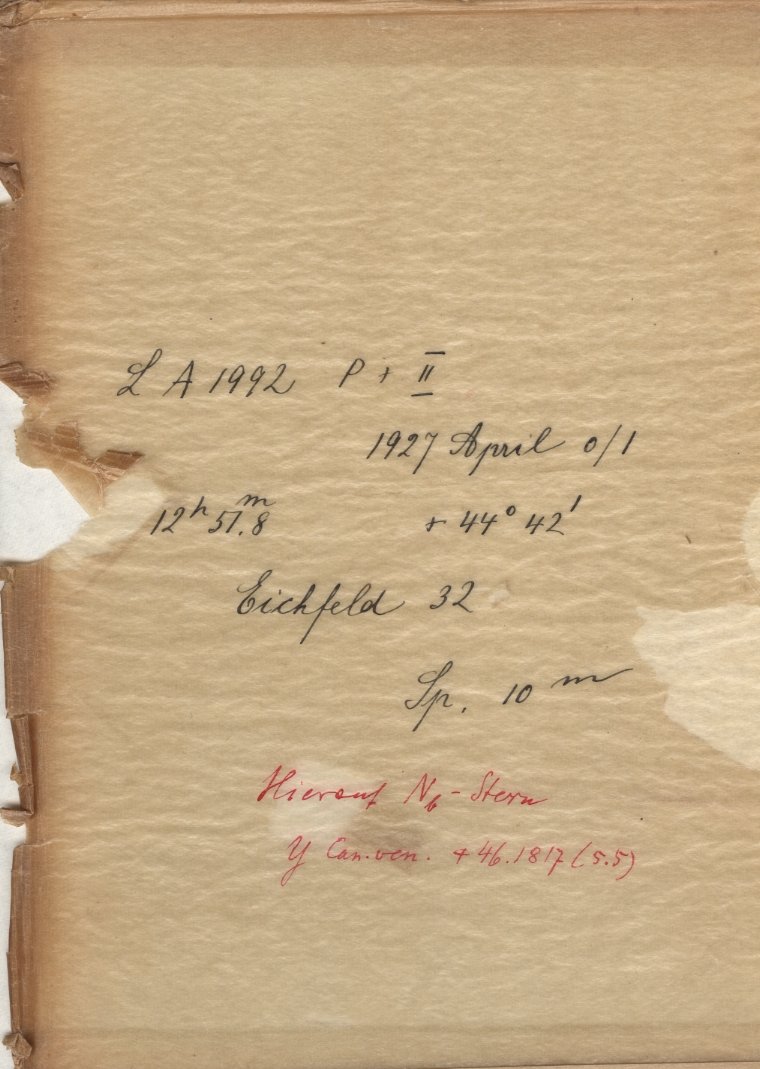 L A 1992 P + II
1927 April 0/1
12ʰ 51.8ᵐ + 44° 42'
Eichfeld 32
Sp. 10 m
Hierauf Nb-Stern
Y Can.ven. +46.1817 (5.5)